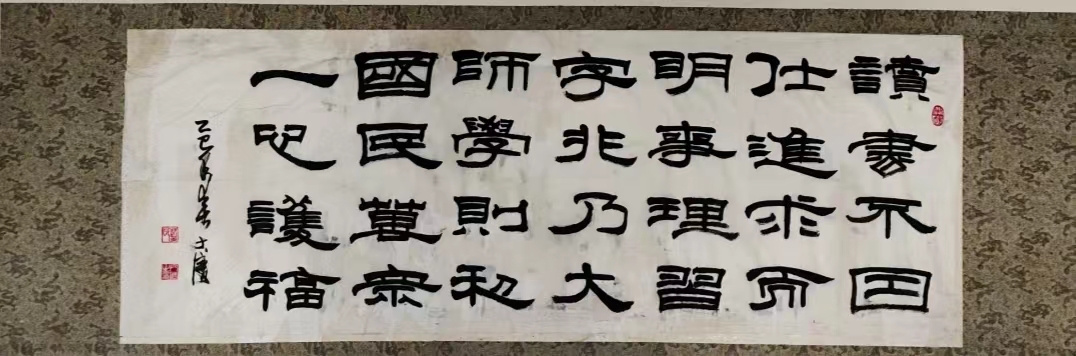 讀書不因
仕進求而
明事理習
字非乃大
師學則和
國民萬眾
一心護福
乙巳